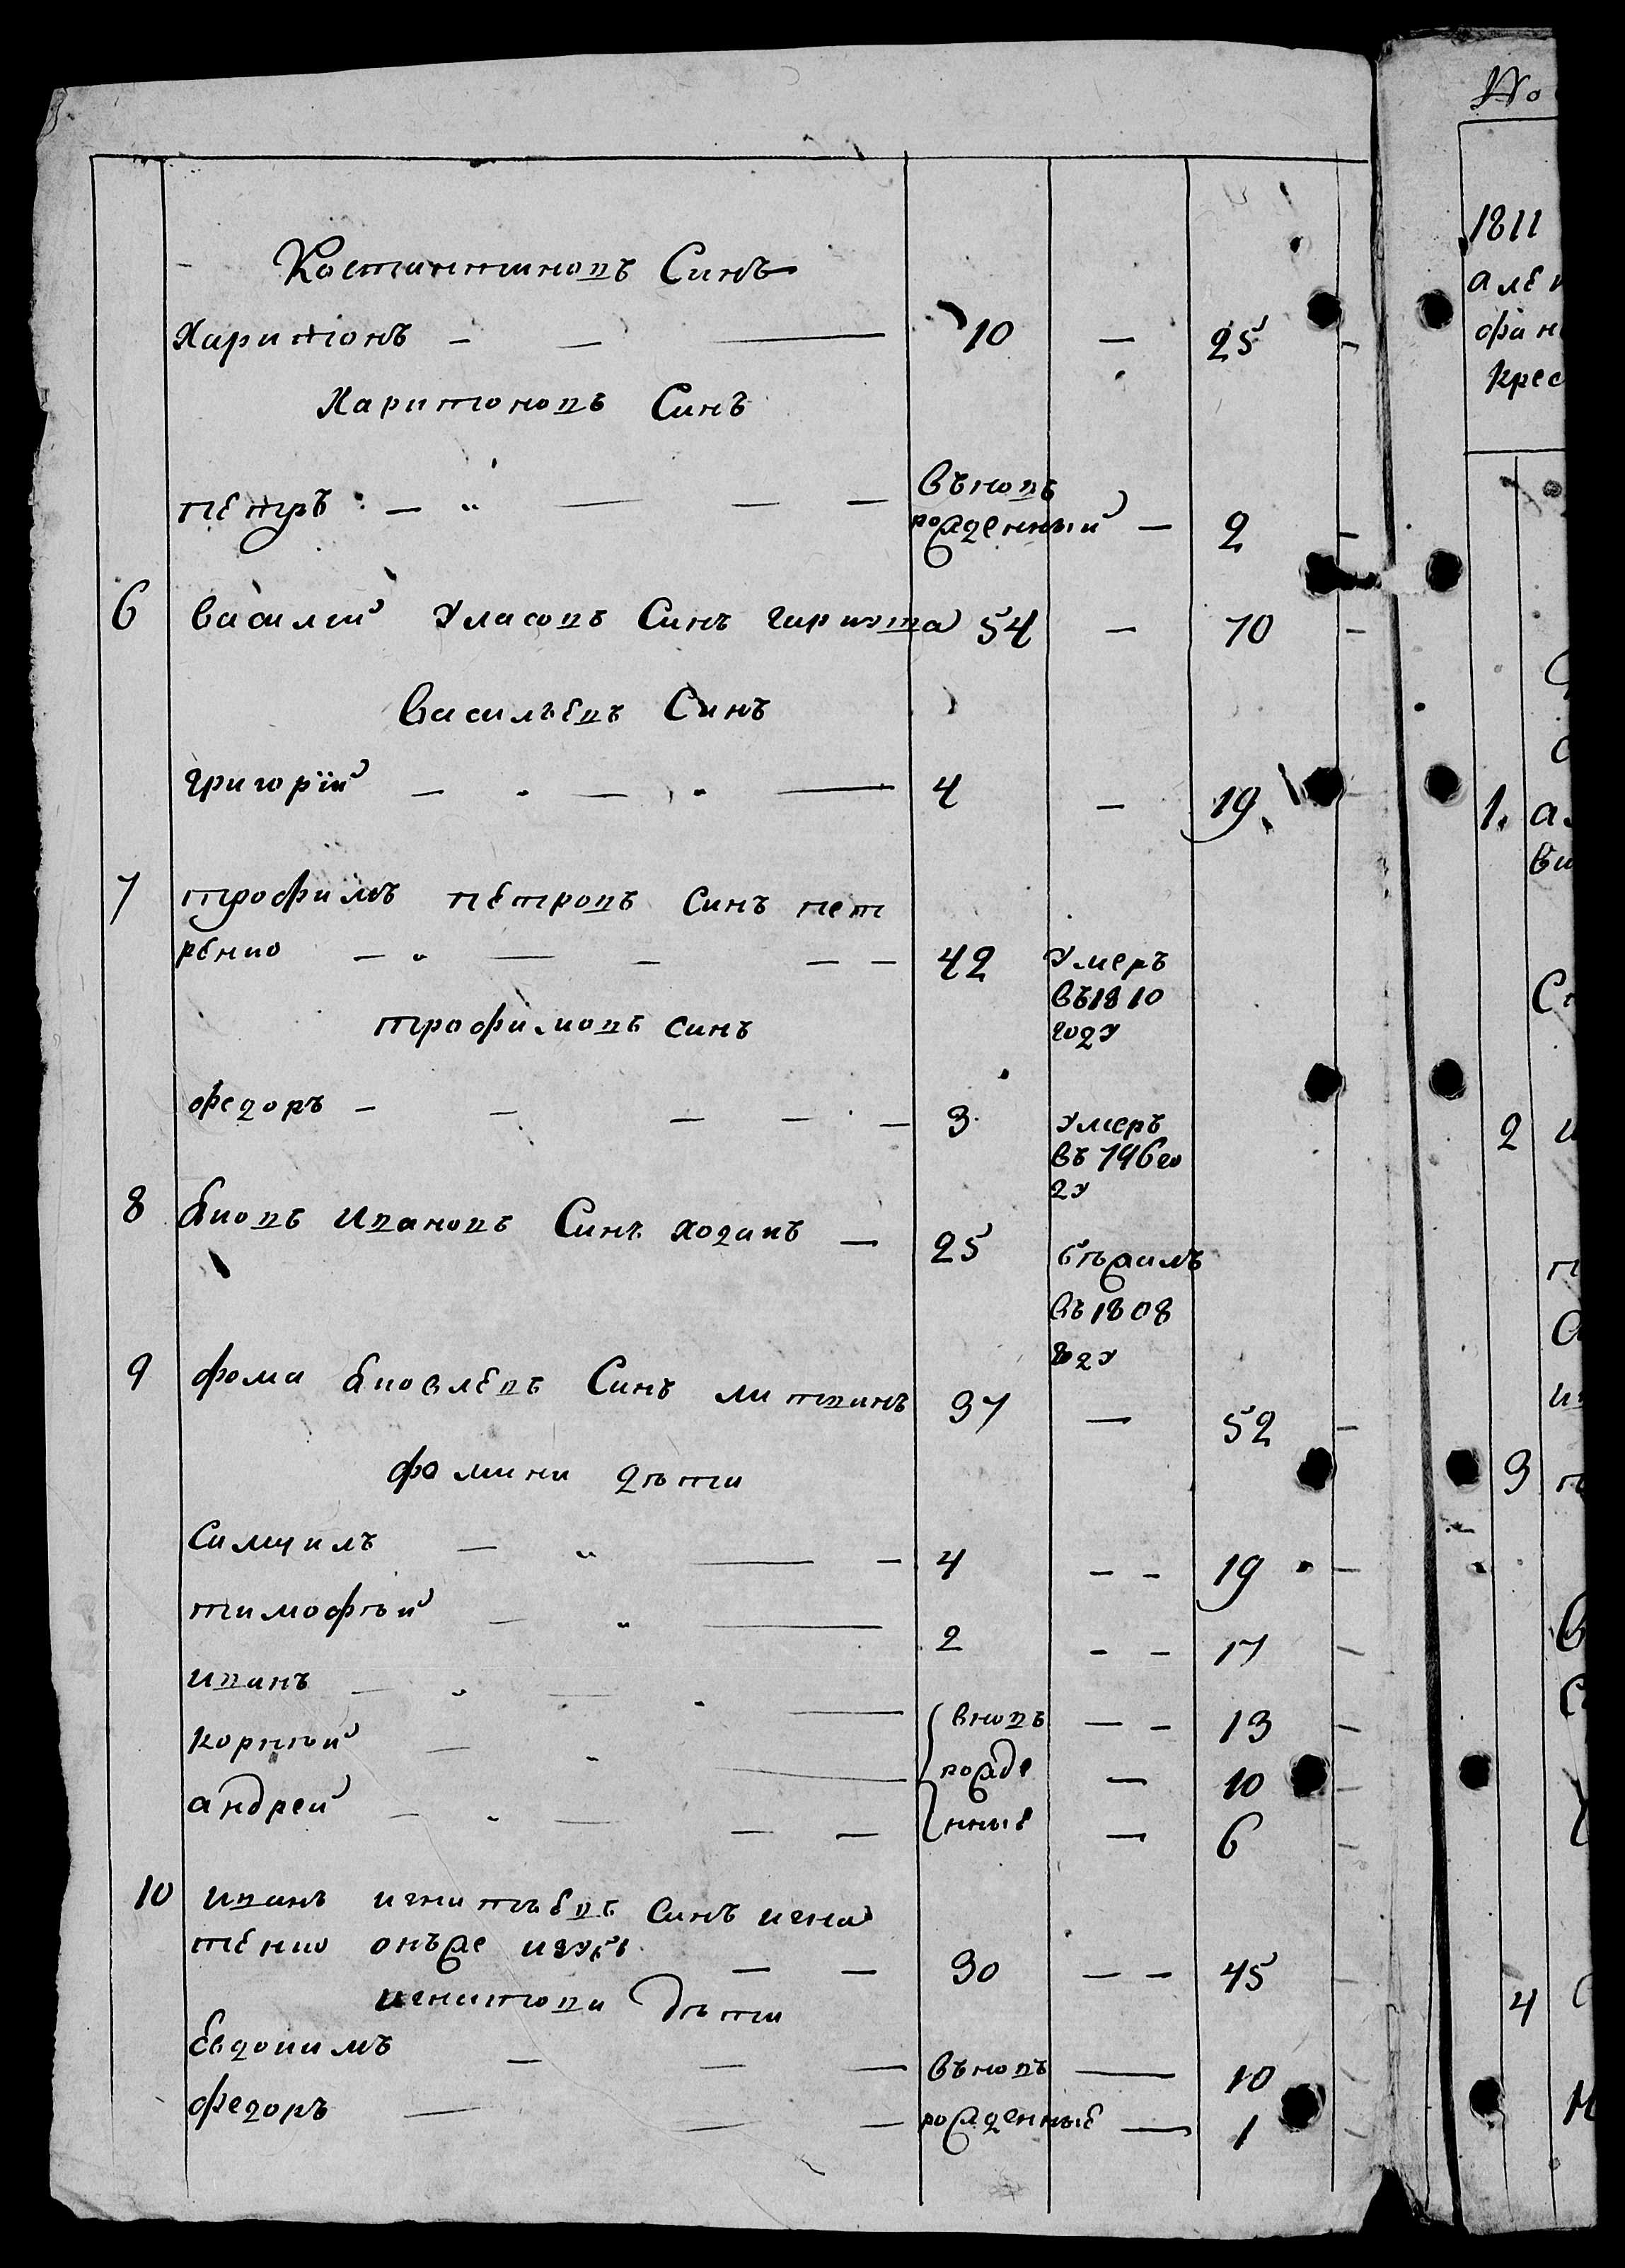 Костинтиновъ Синъ
Харитонъ — — — 10 — 25 —
Харитоновъ Синъ
вьновь
петръ — " — — — рожденный — 2 —
6 василий Уласовъ Синъ 54 — 70 —
Васильевъ Синъ
григорий — " — " — 4 — 19
7 трофимъ петровъ синъ пет
ренко — " — — — — 42 Умеръ
въ 1810
году
трофимовъ синъ
федоръ — — — — — 3 умеръ
въ 796 го
ду
8 Яковъ Ивановъ Синъ ходакъ — 25 бѣжалъ
въ 1808
году
9 фома Яковлевъ Синъ литвинъ 37 — 52 —
фомини дѣти
Самуилъ — " — — 4 — — 19 —
тимофѣй — " — 2 — — 17 —
иванъ — " — " — вновь — — 13 —
корнѣй — " — рожде — 10 —
андрей — " — — — нные — 6 —
10 иванъ игнатьевъ синъ игна
тенко онъже — — 30 — — 45 —
игнатови дѣти
Евдокимъ — — — вьновь — 10 —
федоръ — — — рожденные — 1 —
1811
крес
1.
2
3
4